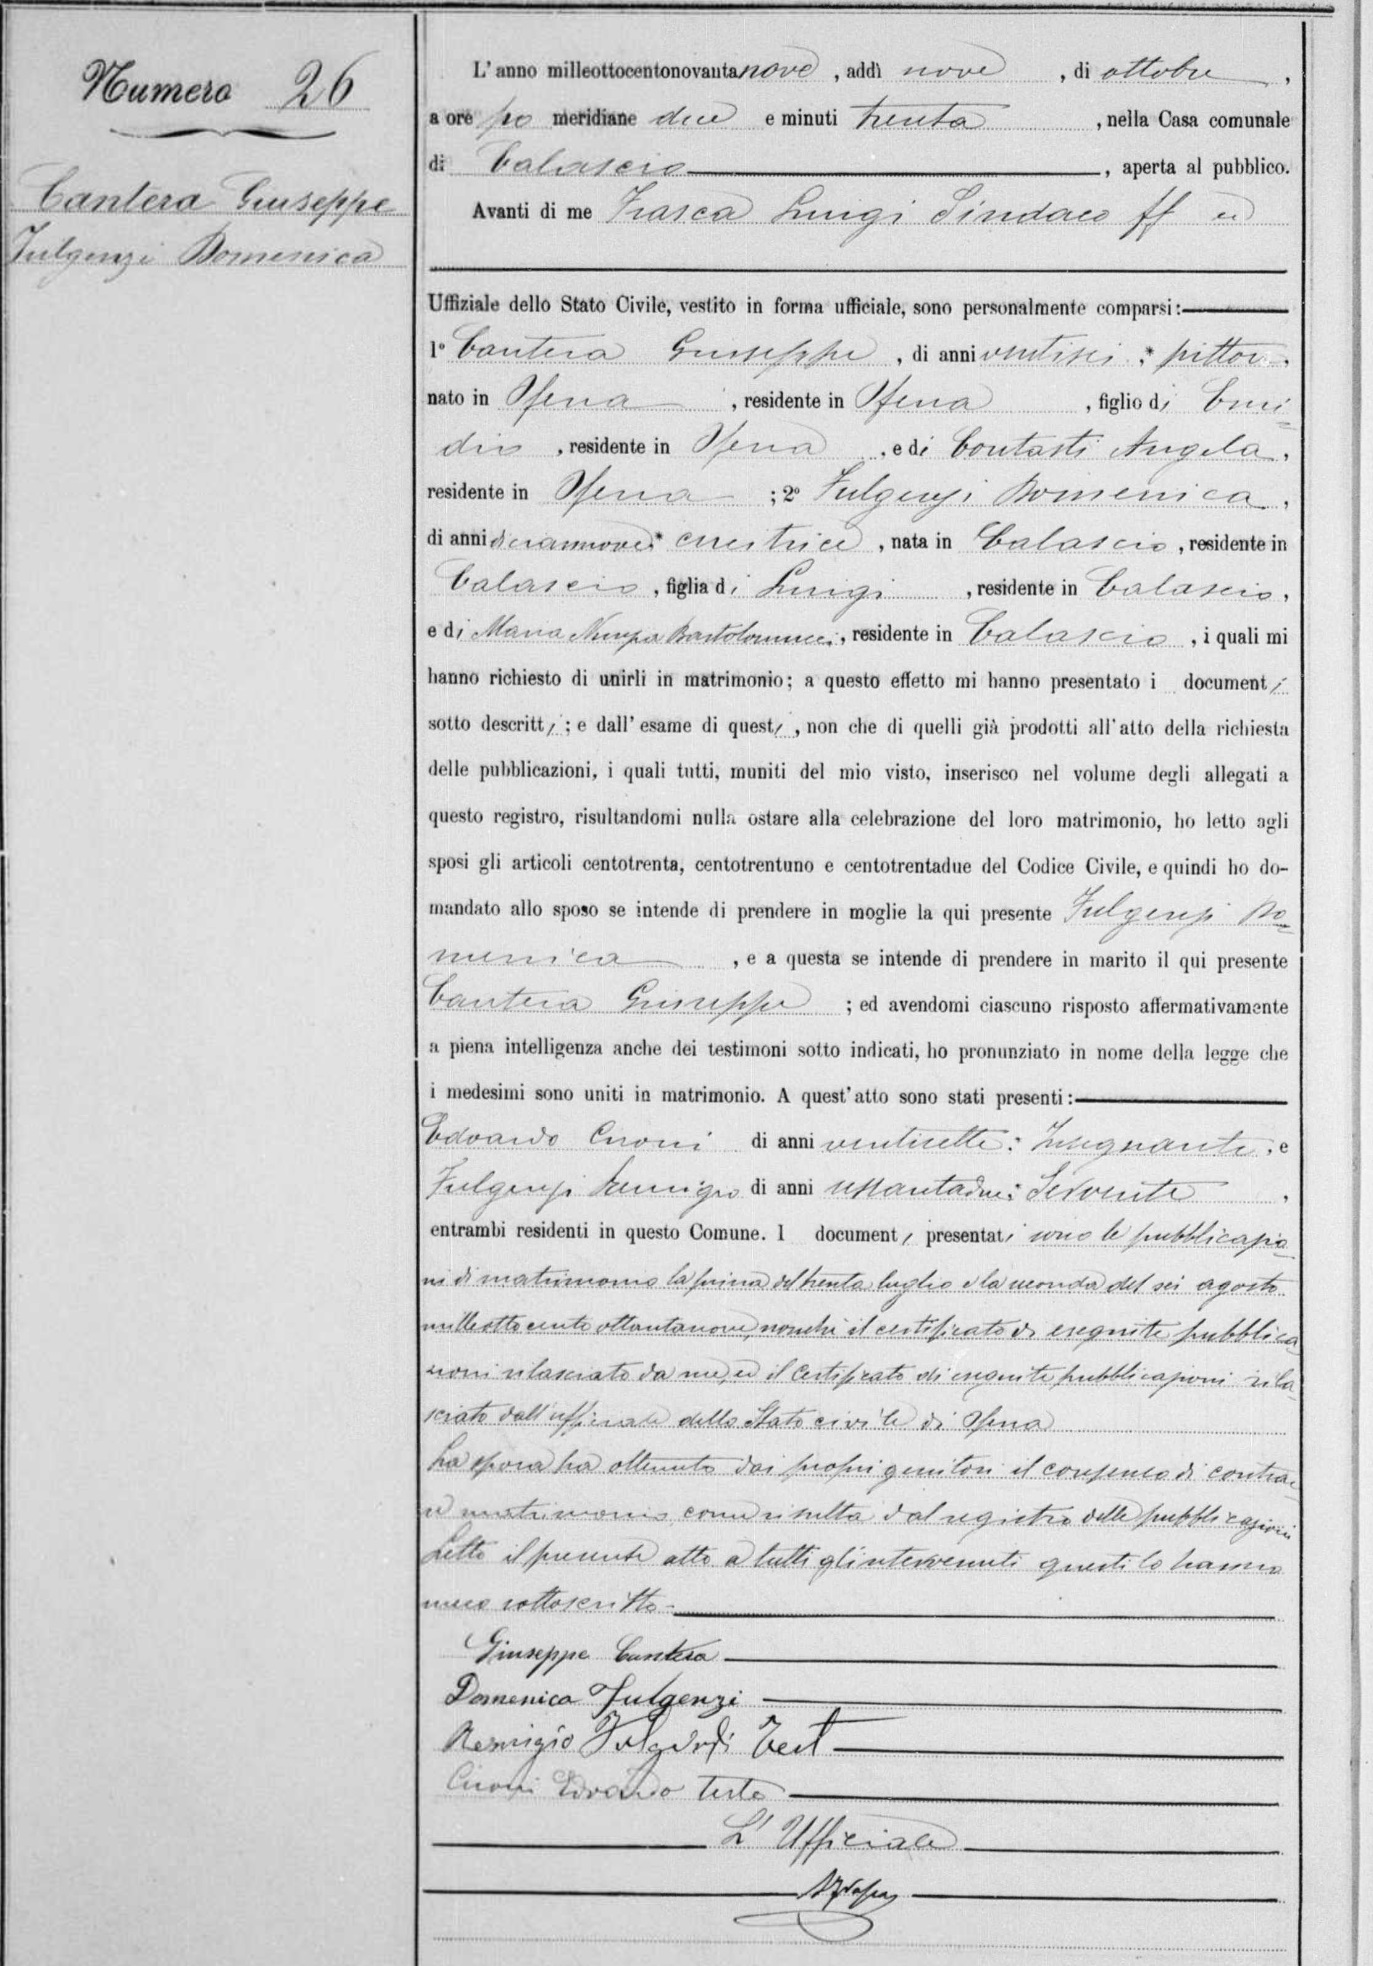 Numero 26
Cantera Giuseppe
Fulgenzi Domenica
L'anno milleottocentonovantanove, addì nove, di ottobre,
a ore po meridiane dieci e minuti trenta, nella Casa comunale
di Calascio, aperta al pubblico.
Avanti di me Frasca Luigi Sindaco ff ed
Uffiziale dello Stato Civile, vestito in forma ufficiale, sono personalmente comparsi:
1° Cantera Giuseppe, di anni ventisei, pittore,
nato in Ofena, residente in Ofena, figlio di Emi-
dio, residente in Ofena, e di Contasti Angela,
residente in Ofena; 2° Fulgenzi Domenica,
di anni diciannove, cucitrice, nata in Calascio, residente in
Calascio, figlia di Luigi, residente in Calascio,
e di Maria Ninfa Bartolomucci, residente in Calascio, i quali mi
hanno richiesto di unirli in matrimonio; a questo effetto mi hanno presentato i documenti
sotto descritti; e dall'esame di questi, non che di quelli già prodotti all'atto della richiesta
delle pubblicazioni, i quali tutti, muniti del mio visto, inserisco nel volume degli allegati a
questo registro, risultandomi nulla ostare alla celebrazione del loro matrimonio, ho letto agli
sposi gli articoli centotrenta, centotrentuno e centotrentadue del Codice Civile, e quindi ho do-
mandato allo sposo se intende di prendere in moglie la qui presente Fulgenzi Do-
menica, e a questa se intende di prendere in marito il qui presente
Cantera Giuseppe; ed avendomi ciascuno risposto affermativamente
a piena intelligenza anche dei testimoni sotto indicati, ho pronunziato in nome della legge che
i medesimi sono uniti in matrimonio. A quest'atto sono stati presenti:
Edoardo Ciuoni di anni ventisette: Insegnante, e
Fulgenzi Remigio di anni sessantadue: Servente,
entrambi residenti in questo Comune. I documenti presentati sono le pubblicazio-
ni di matrimonio la prima del trenta luglio e la seconda del sei agosto
milleottocento ottantanove, nonchè il certificato di eseguite pubblica
zioni rilasciato da me, ed il certificato di eseguite pubblicazioni rila
sciato dall'ufficiale dello Stato civile di Ofena
La sposa ha ottenuto dai propri genitori il consenso di contrar-
re matrimonio come risulta dal registro delle pubblicazioni
Letto il presente atto a tutti gl'intervenuti questi lo hanno
meco sottoscritto.
Giuseppe Cantera
Domenica Fulgenzi
Remigio Fulgenzi Test
Ciuoni Edoardo teste
L'Ufficiale